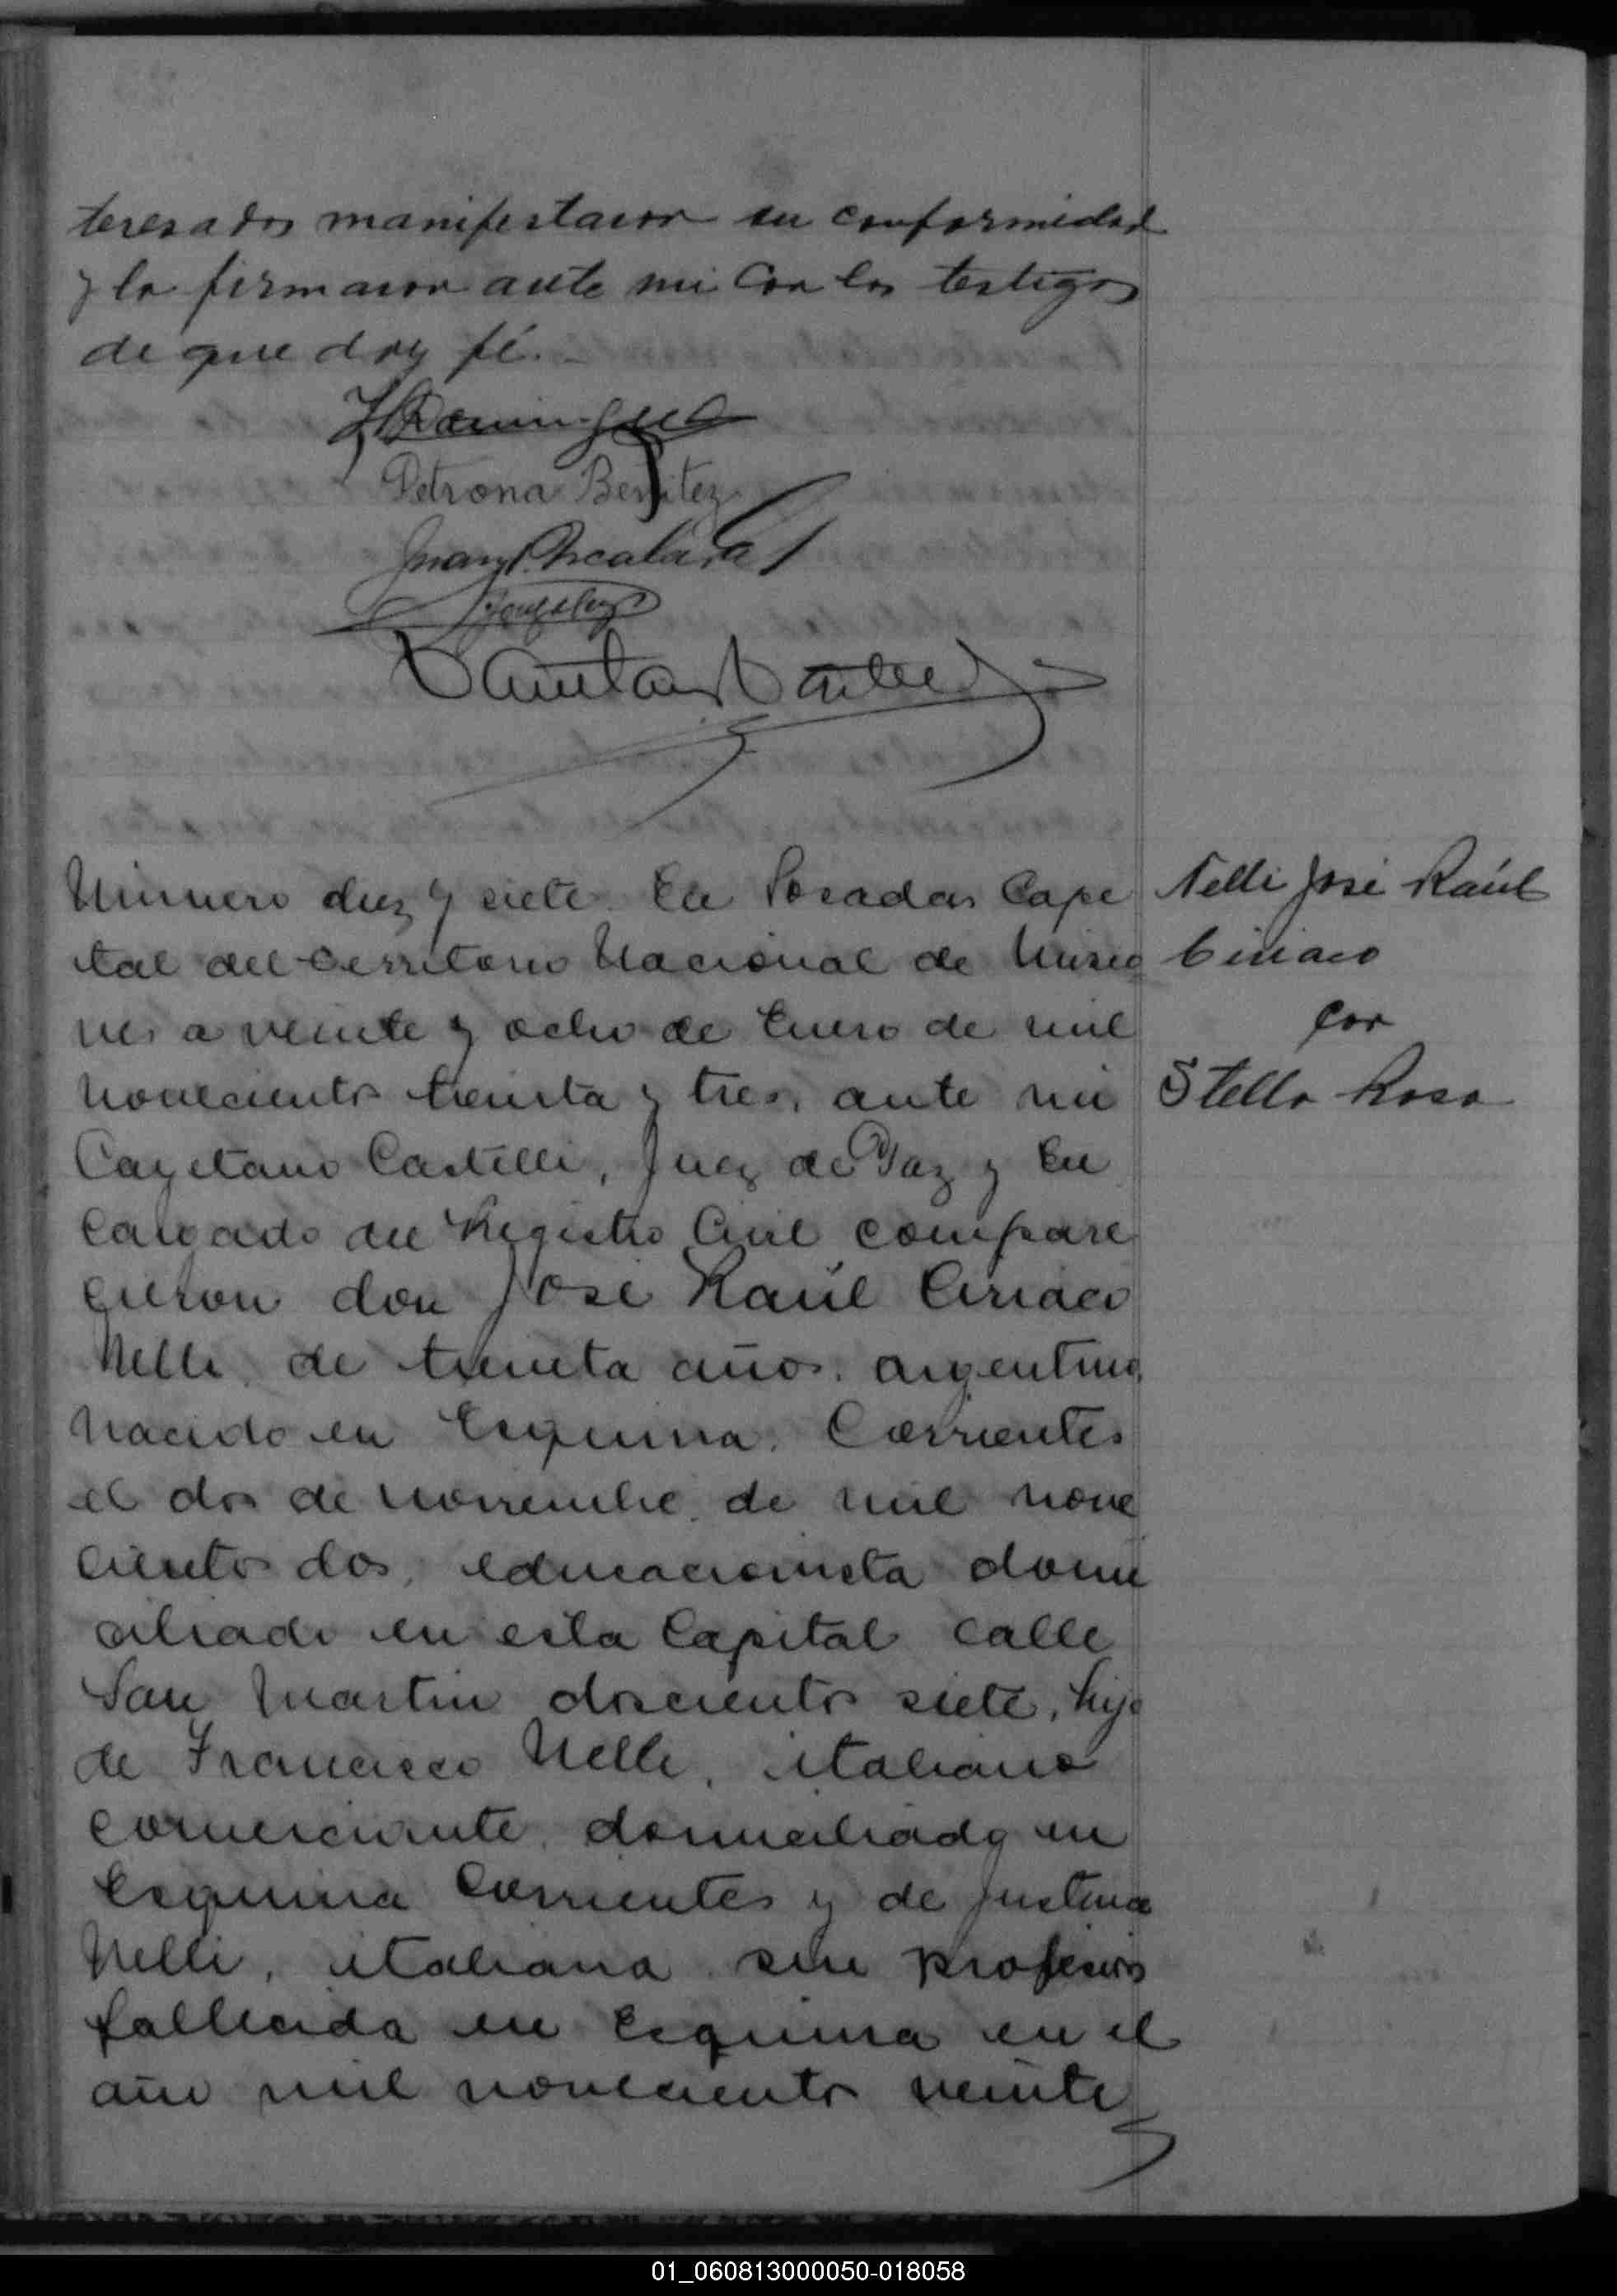 teresados manifestaron su conformidad
y la firmaron ante mi con los testigos
de que doy fé.-
Petrona Benitez
Número diez y siete. En Posadas Capi
tal del Territorio Nacional de Misio
nes a veinte y ocho de Enero de mil
novecientos treinta y tres, ante mi
Cayetano Castelli, Juez de Paz y En
cargado del Registro Civil compare
cieron don José Raúl Ciriaco
Nelli, de treinta años, argentino,
nacido en Esquina, Corrientes
el dos de noviembre de mil nove
cientos dos, educacionista domi
ciliado en esta Capital calle
San Martin doscientos siete, hijo
de Francisco Nelli, italiano
comerciante, domiciliado en
Esquina Corrientes y de Justina
Nelli, italiana sin profesion
fallecida en Esquina en el
año mil novecientos veinte
Nelli José Raúl
Ciriaco
con
Stella Rosa
01_060813000050-018058